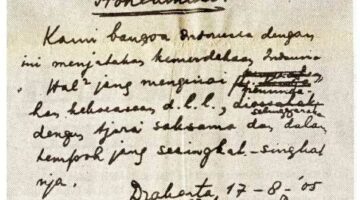 Proklamasi
Kami bangsa Indonesia dengan
ini menjatakan kemerdekaan Indonesia
Hal² jang mengenai
kekoeasaan d.l.l., diselenggarakan
dengan tjara saksama dan dalam
tempoh jang sesingkat-singkat
nja.
Djakarta, 17-8-'05